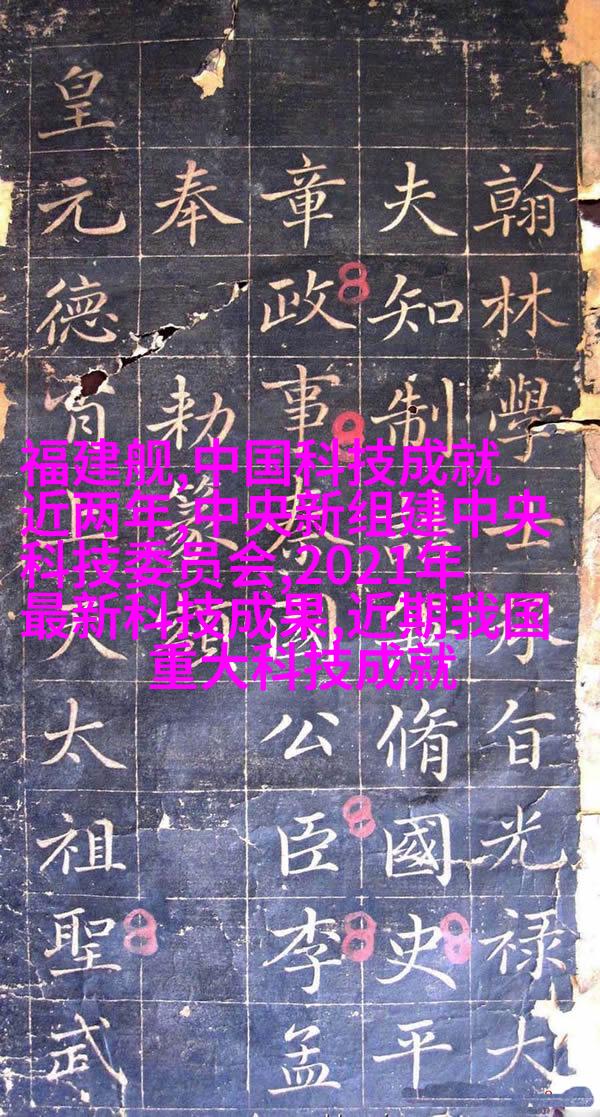 福建舰,中国科技成就
近两年,中央新组建中央
科技委员会,2021年
最新科技成果,近期我国
重大科技成就
翰林學士承旨光禄大
夫知制脩國史平
章政事秦國公臣李孟
奉勑篆
皇元德太祖聖武